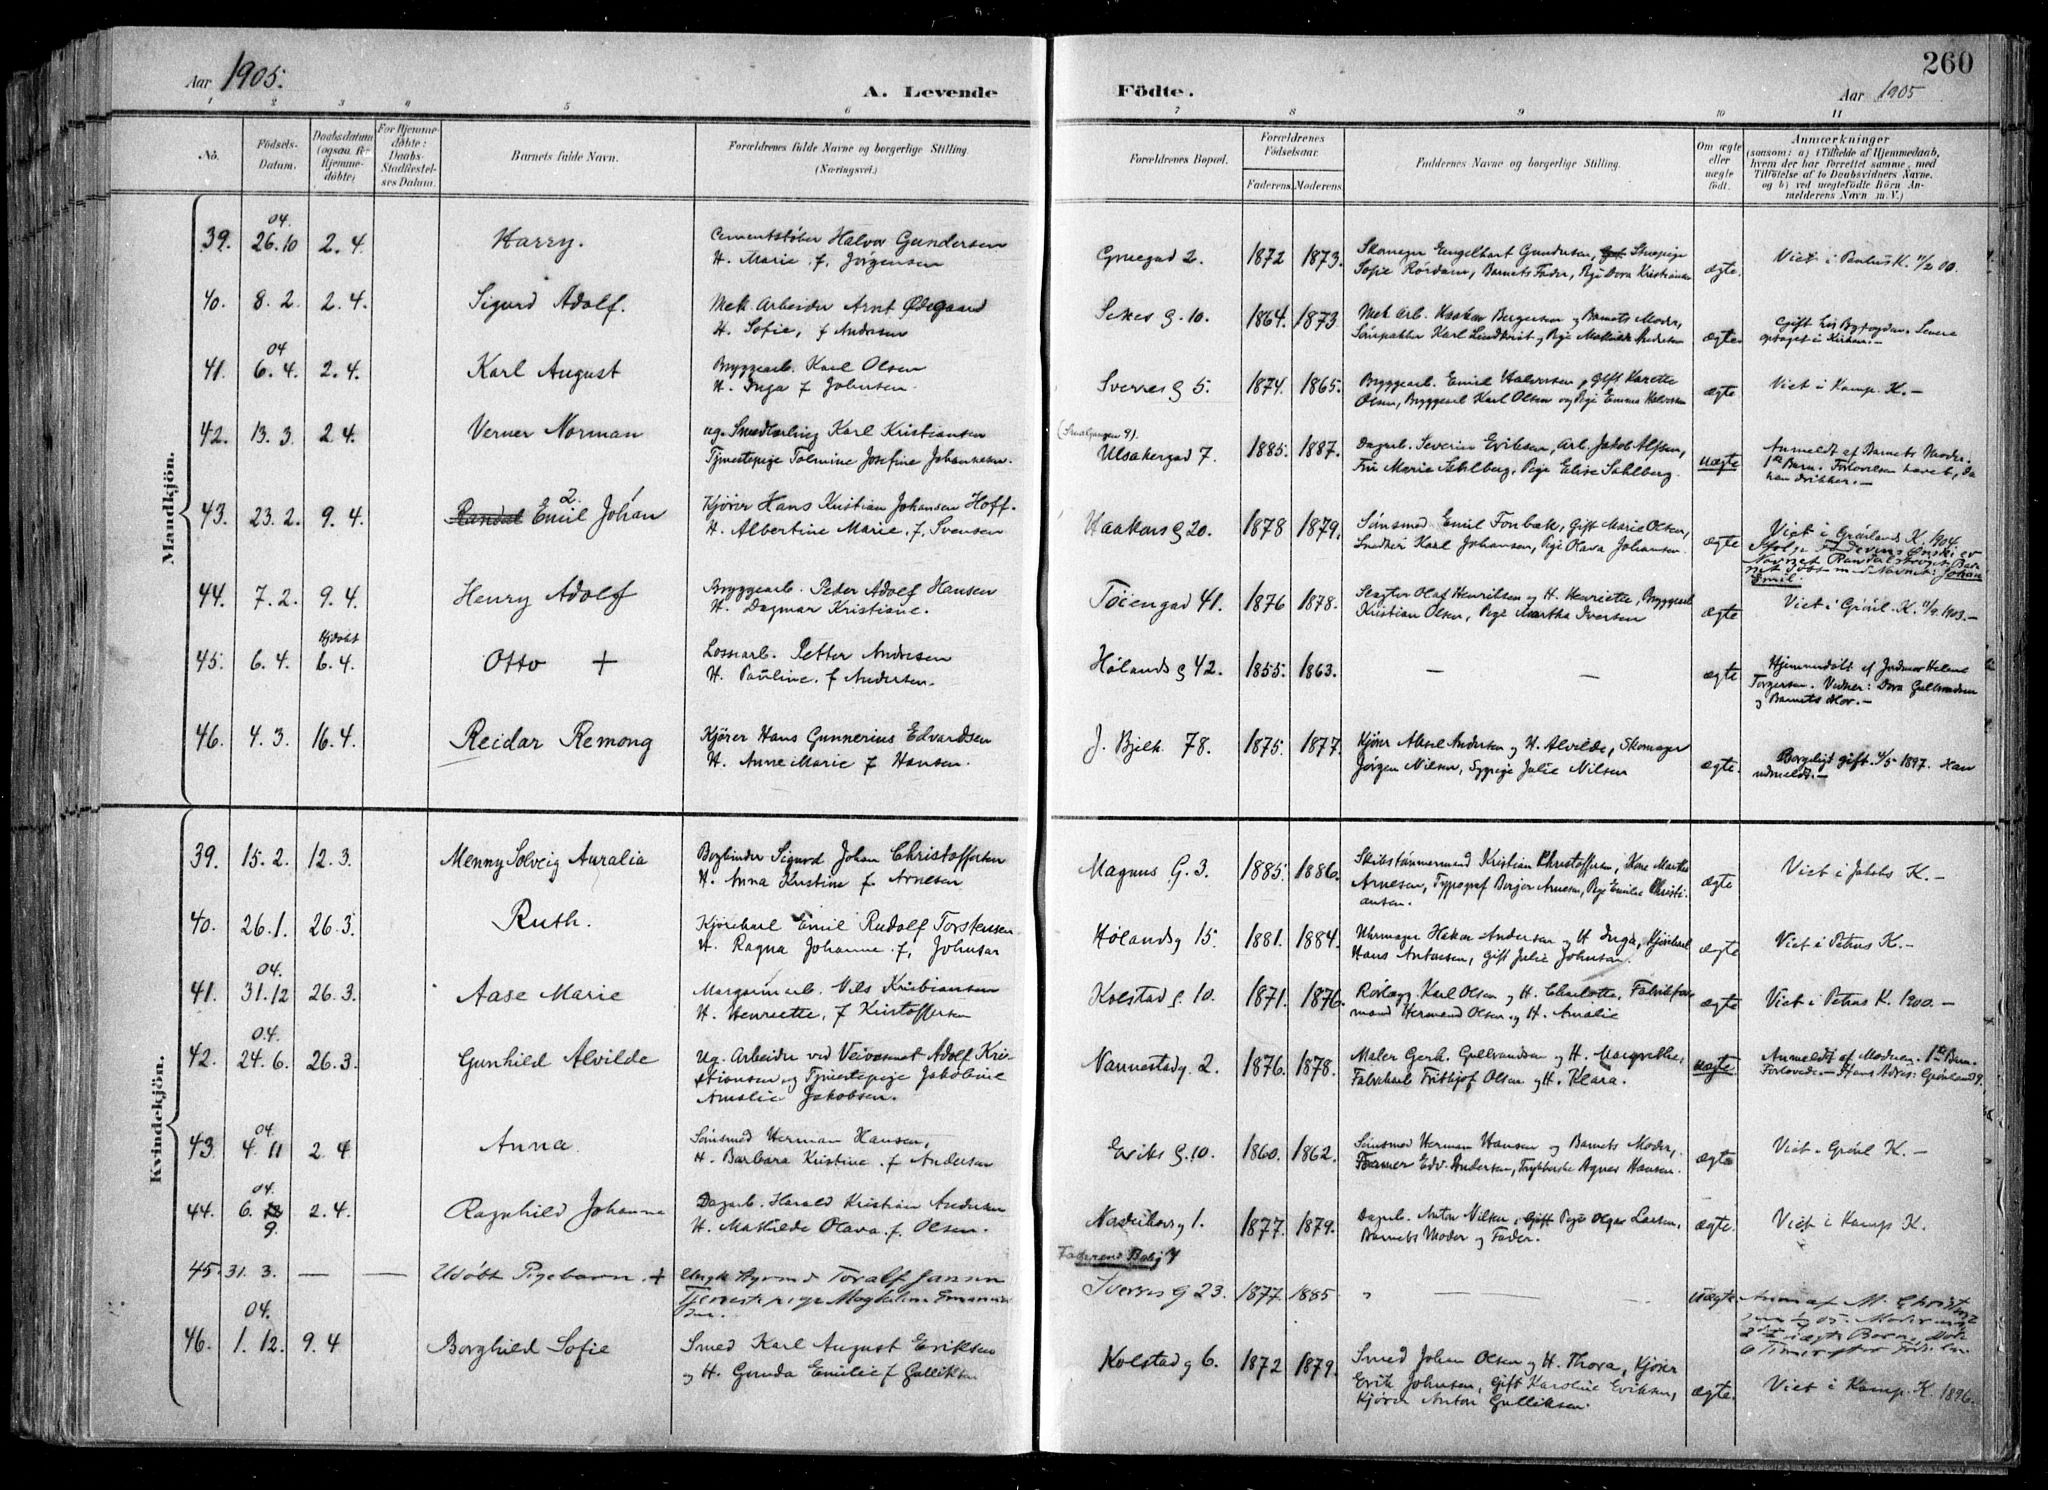 260
Aar 1905.
A. Levende
Födte.
Aar 1905
1 2 3 4 5 6 7 8 9 10 11
No.
Födsels-
Datum.
Daabsdatum
(ogsaa for
Hjemme-
döbte)
For Hjemme-
döbte:
Daabs-
Stadfæstel-
ses Datum.
Barnets fulde Navn.
Forældrenes fulde Navne og borgerlige Stilling
(Næringsvei.)
Forældrenes Bopæl.
Forældrenes
Födselsaar.
Faderens.
Moderens.
Faddernes Navne og borgerlige Stilling.
Om ægte
eller
uægte
födt.
Anmærkninger
(saasom: a) i Tilfælde af Hjemmedaab,
hvem der har forrettet samme, med
Tilföielse af to Daabsvidners Navne,
og b) ved uægtefödte Börn An-
melderens Navn m. V.)
Mandkjön.
39. 26.10 04. 2.4. Harry.
Cementstøber Halvor Gundersen
H. Marie f. Jørgensen
Gruegad 2. 1872 1873.
Skomager Engelhart Gundersen,
Sofie Rördam, Barnets Fader, Pige Dora Kristiansen
ægte.
Viet i Paulus K.
40. 8.2. 2.4. Sigurd Adolf.
Mek Arbeider Arnt Ødegaard
H. Sofie, f Andersen
1864. 1873
Mek Arb. Haakon Bergersen og Barnets Moder,
Karl Lindkvist og Pige Mathilde Andersen
ægte.
Gift hos Byfogden. Senere
optaget i Kirken.-
41. 6.4. 04 2.4. Karl August
Bryggearb. Karl Olsen
H. Inga f Johnsen.
Sverres g 5. 1874. 1865.
Bryggearb. Emil Halvorsen, Gift Karette
Olsen, Bryggearb Karl Olsen og Pige Emma Halvorsen
ægte
Viet i Kamp. K.-
42. 13.3. 2.4. Verner Norman
ug. Smedlærling Karl Kristiansen
Tjenestepige Tolmine Josefine Johannesen.
(Smalgangen 9).
Ulsakergad 7. 1885. 1887.
Dagarb. Severin Eriksen, Arb. Jakob Alfsen,
Fru Marie Sahlberg, Pige Elise Sahlberg.
uægte
Anmeldt af Barnets Moder.
1ste Barn. Forlovelsen hævet, da
han drikker.-
43. 23.2. 9.4. Randal Emil 2. Johan 1
Kjører Hans Kristian Johansen Hoff.
H. Albertine Marie f. Svensen
Haakons g 20. 1878 1879.
Emil Fonbæk, Gift Marie Olsen,
Snedker Karl Johansen, Pige Olava Johansen.
ægte
Viet i Grønlands K. 1904
Ifølge Navnet Randal strøget. Bar-
net døbt med Navnet: Johan
Emil.
44. 7.2. 9.4. Henry Adolf
Bryggearb. Peter Adolf Hansen
H. Dagmar Kristiane.
Tøiengad 41. 1876 1878.
Slagter Olaf Henriksen og H. Henriette, Bryggearb
Kristian Olsen, Pige Martha Iversen
ægte
Viet i Grønl. K. 1903.-
45. 6.4. Hjdøbt 6.4. Otto +
Lossearb. Petter Andresen
H. Pauline f Andersen.
Hølands g 42. 1855. 1863. - -
ægte
Hjemmedøbt af Jordmor Helene
Torgersen. Vidner: Dora Gulbrandsen
og Barnets Mor.-
46. 4.3. 16.4. Reidar Remong
Kjører Hans Gunnerius Edvardsen
H. Anne Marie f Hansen.
J. Bjelk. 78. 1875. 1877.
Kjører Aksel Andersen og H. Alvilde, Skomager
Jørgen Nilsen, Sypige Julie Nilsen
ægte.
Borgeligt gift 4/5 1897. Han
udmeldt.-
Kvindekjön.
39. 15.2. 12.3. Menny Solveig Auralia
Bogbinder Sigurd Johan Christoffersen
H. Anna Kristine f Arnesen
Magnus G. 3. 1885. 1886.
Skibstømmermand Kristian Christoffersen, Kone Marthe
Arnesen, Typograf Birger Arnesen, Pige Emilie Christi-
ansen.
ægte
Viet i Jakobs K.-
40. 26.1. 26.3. Ruth.
Kjørekarl Emil Rudolf Torstensen
H. Ragna Johanne f. Johnsen
Hølandsg 15. 1881. 1884.
Uhrmager Hakon Andersen og H Inga, Kjørekarl
Hans Antonsen, Gift Julie Johnsen.
ægte
Viet i Petrus K.-
41. 31.12 04. 26.3. Aase Marie
Margarinarb. Nils Kristiansen
H. Henriette, f Kristoffersen
Kolstad g. 10. 1871. 1876.
Rørlægg. Karl Olsen og H. Charlotte, Fabrikfor-
mand Herman Olsen og H. Amalie
ægte
Viet i Petrus K. 1900.-
42. 24.6. 04. 26.3. Gunhild Alvilde
Ug. Arbeider ved Veivæsenet Adolf Kri-
stiansen og Tjenestepige Jakobine
Amalie Jakobsen.
Nannestadg. 2. 1876. 1878.
Maler Gerh. Gulbrandsen og H. Margrethe,
Fabrikarb Frithjof Olsen og H. Klara.
uægte
Anmeldt af Moderen. 1ste Barn.
Forlovede.- Hans Adres: Grønland 9.
43. 4.11 04. 2.4 Anna.
Herman Hansen,
H. Barbara Kristine f Andersen
Eriks g. 10. 1860. 1862.
Herman Hansen og Barnets Moder,
Former Edv. Andersen, Agnes Hansen.
ægte
Viet i Grønl K.-
44. 6. 9. 04. 2.4. Ragnhild Johanne
Dagarb. Harald Kristian Andersen
H. Mathilde Olava f. Olsen.
1. 1877. 1879.
Dagarb. Anton Nilsen, Gift Pige Olga Larsen,
Barnets Moder og Fader.
ægte.
Viet i Kamp K.
45. 31.3. - - Udøbt Pigebarn +
Ungk Toralf Jansen
Tjenestepige Magdalene
Faderens Bolig
Sverres g 23. 1877 1885
uægte
46. 1.12. 04. 9.4 Borghild Sofie
Smed Karl August Eriksen
og H. Gunda Emilie f Gulliksen
Kolstad g 6. 1872 1879.
Smed Johan Olsen og H. Thora, Kjører
Erik Johnsen, Gift Karoline Eriksen,
Kjører Anton Gulliksen.
ægte.
Viet i Kamp. K. 1896.